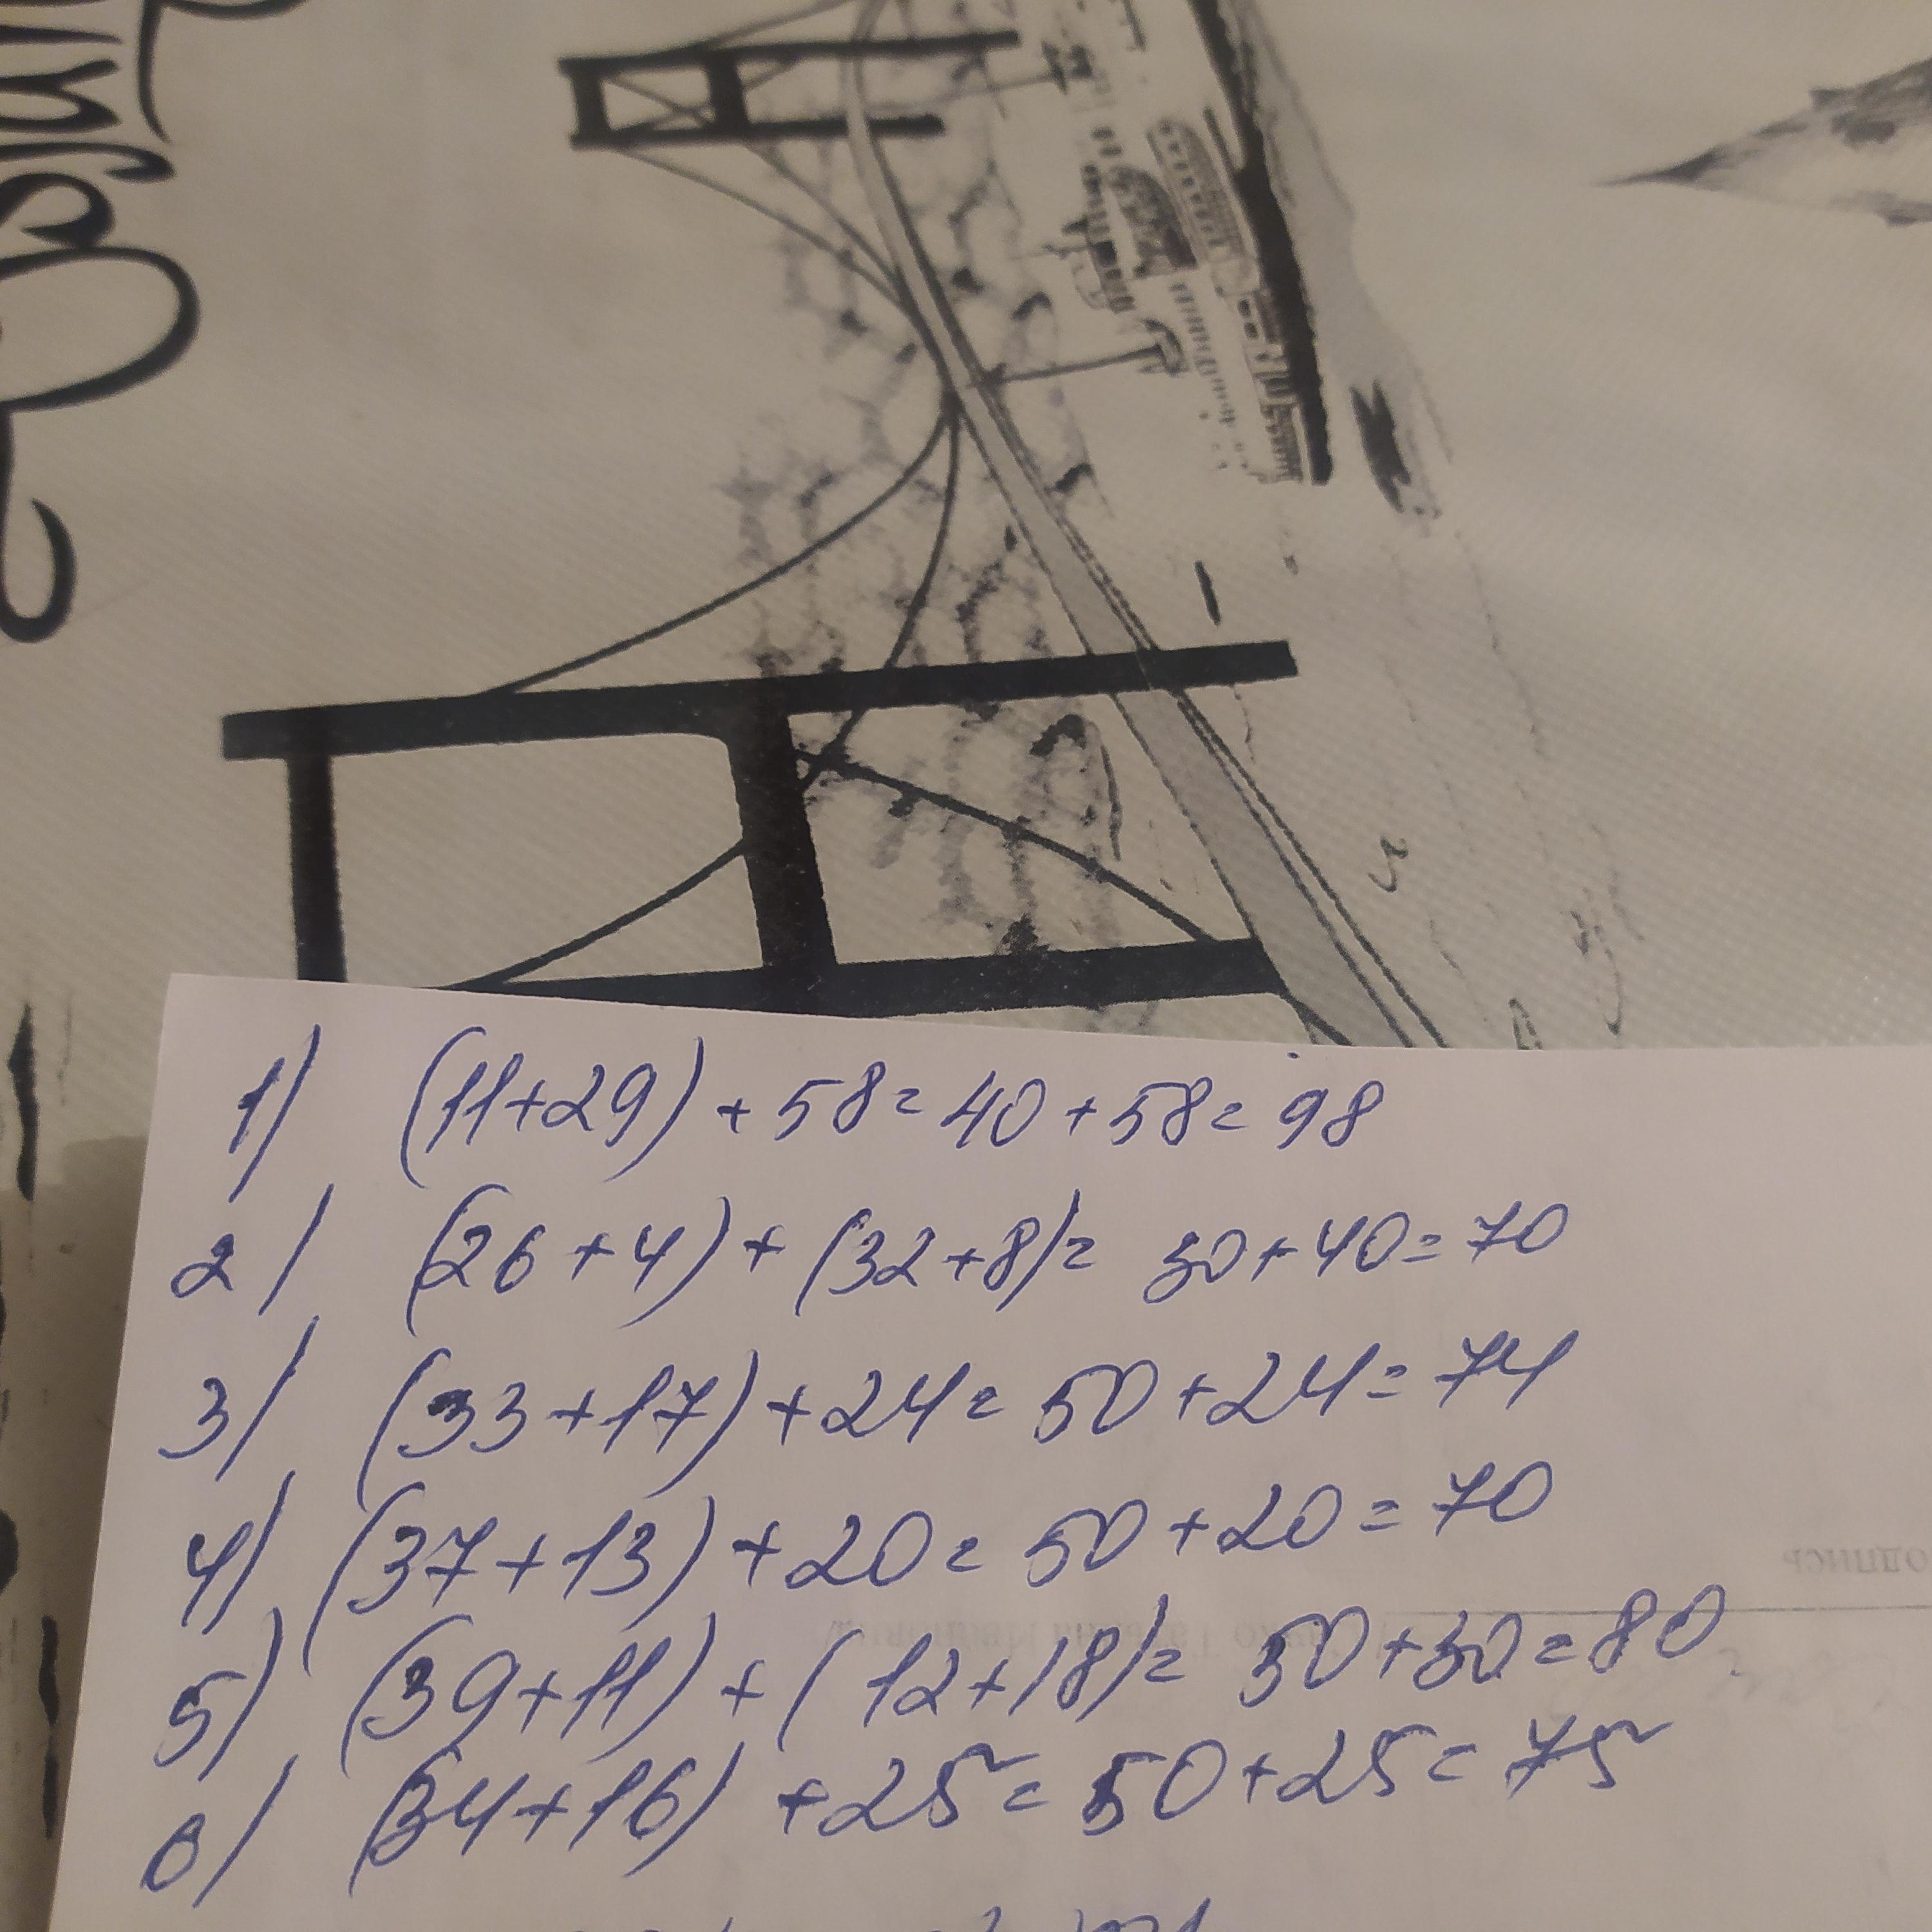 1) (11+29)+58=40+58=98
2) (26+4)+(32+8)=30+40=70
3) (33+17)+24=50+24=74
4) (37+13)+20=50+20=70
5) (39+11)+(12+18)=50+30=80
6) (34+16)+25=50+25=75